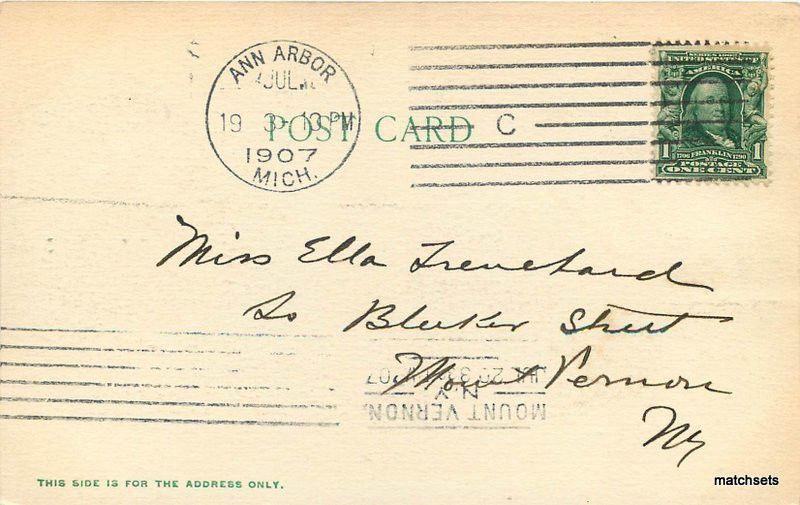 ANN ARBOR
JUL
19 3-13 PM
1907
MICH.
POST CARD
C
SERIES 1902
UNITED STATES OF
AMERICA
1706 FRANKLIN 1790
1 1
POSTAGE
ONE CENT
Miss Ella Trenchard
So Bleeker Street
Mount Vernon
NY
MOUNT VERNON,
N.Y.
THIS SIDE IS FOR THE ADDRESS ONLY.
matchsets